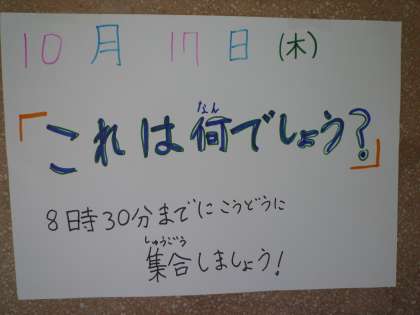 10月17日(木)
「これは何でしょう?」
なん
8時30分までにこうどうに
しゅうごう
集合しましょう!